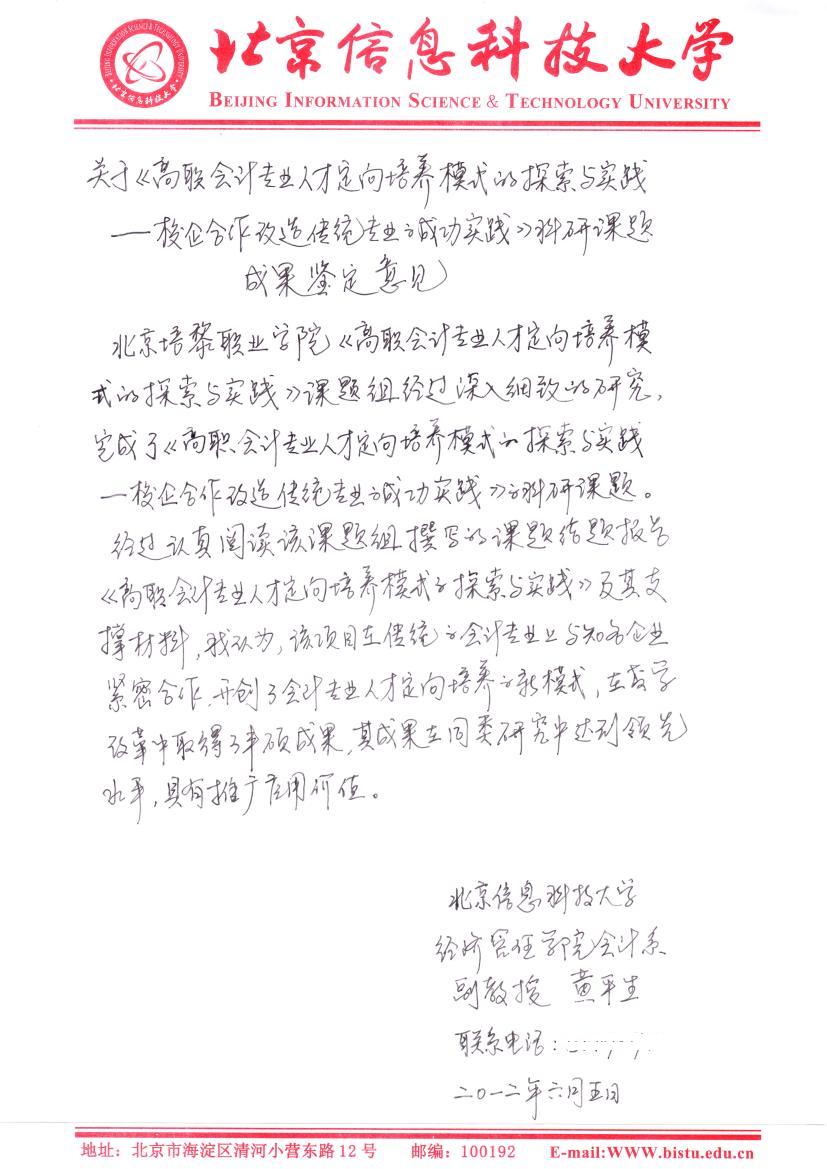 北京信息科技大学
BEIJING INFORMATION SCIENCE & TECHNOLOGY UNIVERSITY
关于《高职会计专业人才定向培养模式的探索与实践
——校企合作改造传统专业的成功实践》科研课题
成果鉴定意见
北京培黎职业学院《高职会计专业人才定向培养模
式的探索与实践》课题组经过深入细致的研究，
完成了《高职会计专业人才定向培养模式的探索与实践
—校企合作改造传统专业的成功实践》的科研课题。
经过认真阅读该课题组撰写的课题结题报告
《高职会计专业人才定向培养模式的探索与实践》及其支
撑材料，我认为，该项目在传统的会计专业上与知名企业
紧密合作，开创了会计专业人才定向培养的新模式，在教学
改革中取得了丰硕成果，其成果在同类研究中达到领先
水平，具有推广应用价值。
北京信息科技大学
经济管理学院会计系
副教授 黄平生
联系电话：
二〇一二年六月五日
地址：北京市海淀区清河小营东路12号 邮编：100192 E-mail:WWW.bistu.edu.cn